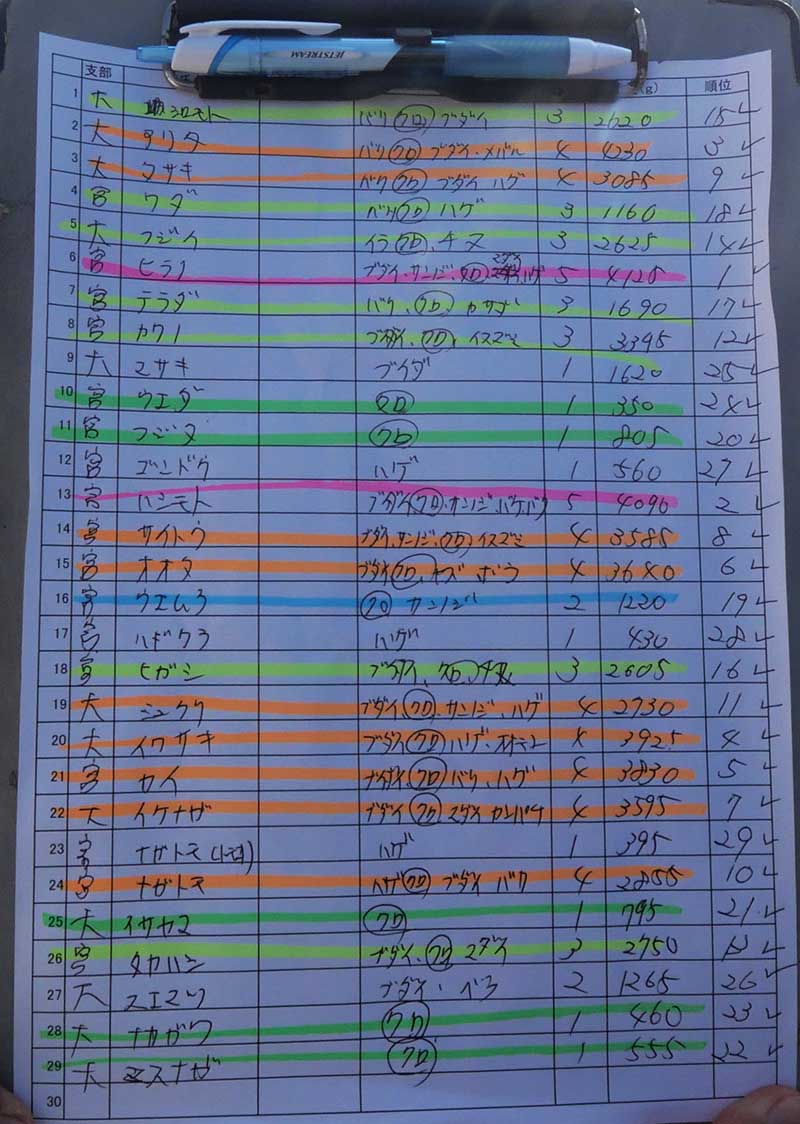 JETSTREAM
支部 (g) 順位
1 大 シロモト バリ クロ ブダイ 3 2620 15
2 大 ナリタ バリ クロ ブダイ・メバル 4 4230 3
3 大 マサキ ベラ クロ ブダイ ハゲ 4 3085 9
4 宮 ワダ ベラ クロ ハゲ 3 1160 18
5 大 フジイ イラ クロ、チヌ 3 2625 14
6 宮 ヒラノ ブダイ・サンジ、クロ マダイ ハゲ 5 4125 1
7 宮 テラダ バリ、クロ、カサゴ 3 1690 17
8 宮 カワノ ブダイ、クロ、イスズミ 3 3395 12
9 大 マサキ ブイダ 1 1620 25
10 宮 ウエダ クロ 1 350 24
11 宮 フジタ クロ 1 805 20
12 宮 ゴンドウ ハゲ 1 560 27
13 宮 ハシモト ブダイ クロ・サンジ、ハゲ、バリ 5 4090 2
14 宮 サイトウ ブダイ、サンジ、クロ イスズミ 4 3585 8
15 宮 オオタ ブダイ クロ、ヤズ ボラ 4 3640 6
16 宮 ウエムラ クロ サンジ 2 1220 19
17 宮 ハギワラ ハゲ 1 430 28
18 宮 ヒガシ ブダイ、クロ、チヌ 3 2605 16
19 大 シュクリ ブダイ クロ・サンジ、ハゲ 4 2730 11
20 大 イワサキ ブダイ クロ ハゲ・オキナコ 4 3925 4
21 宮 カイ ブダイ クロ バリ、ハゲ 4 3830 5
22 大 イケナガ ブダイ クロ マダイ カンパチ 4 3595 7
23 宮 ナガトモ(トモキ) ハゲ 1 395 29
24 宮 ナガトモ ハゲ クロ ブダイ バリ 4 2855 10
25 大 イサヤマ クロ 1 795 21
26 宮 タカハシ ブダイ、クロ マダイ 3 2750 13
27 大 スエマツ ブダイ・ベラ 2 1265 26
28 大 ナカガワ クロ 1 460 23
29 大 ミスナガ クロ 1 555 22
30